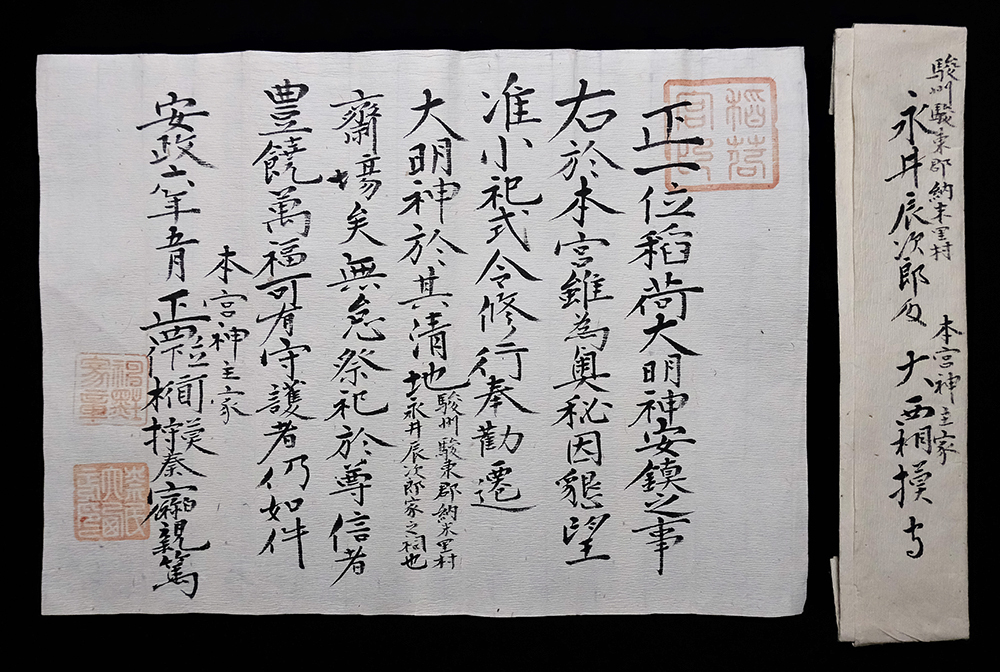 正一位稲荷大明神安鎮之事
右於本宮雖為奥秘因懇望
准小祀式令修行奉勸遷
大明神於其清地
駿州駿東郡納米里村
永井辰次郎家之祠也
齋場矣無怠祭祀於尊信者
豊饒萬福可有守護者仍如件
本宮神主家
安政六年五月 正四位下 秦 親篤
駿州駿東郡納米里村
永井辰次郎殿
本宮神主家
大西相摸守